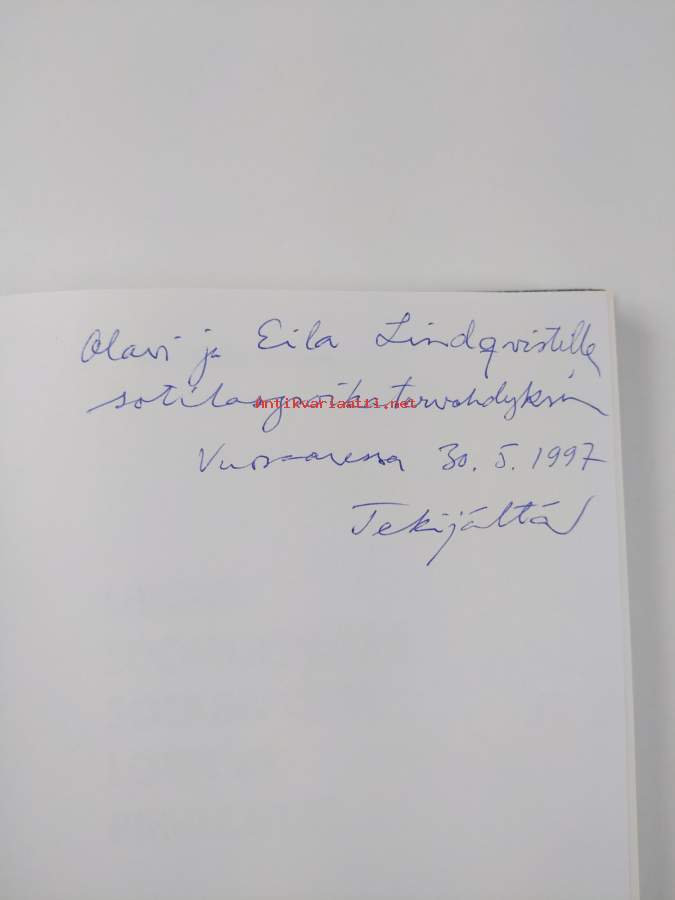 Olavi ja Eila Lindqvistille
sotilaspoika tervehdyksin
Antikvariaatti.net
Vuosaaressa 30.5.1997
Tekijältä